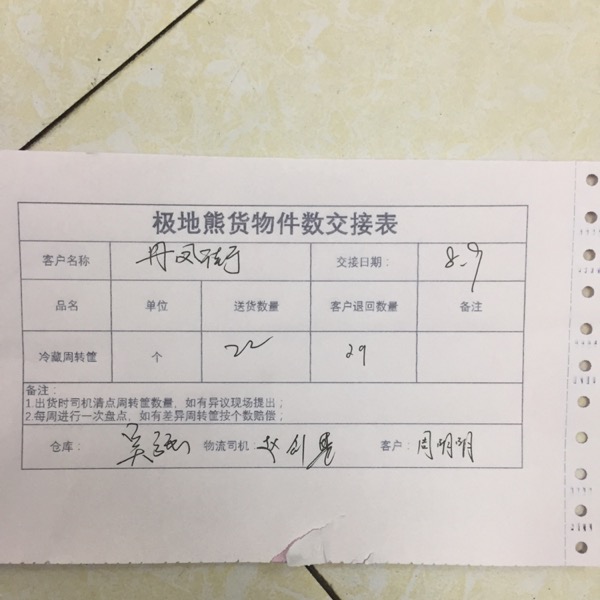 极地熊货物件数交接表
客户名称 丹凤街 交接日期： 8.9
品名 单位 送货数量 客户退回数量 备注
冷藏周转筐 个 22 29
备注：
1.出货时司机清点周转筐数量，如有异议现场提出；
2.每周进行一次盘点，如有差异周转筐按个数赔偿；
仓库： 物流司机： 客户： 周明明